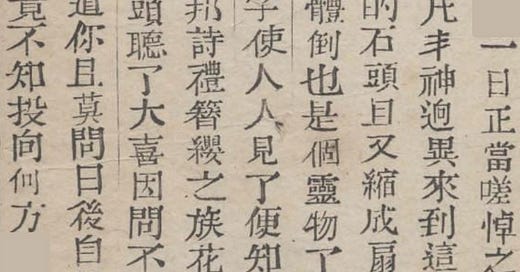 一日正當嗟悼之
凡丰神逈異來到這
的石頭且又縮成扇
體倒也是個靈物了
字使人人見了便知
邦詩禮簪纓之族花
頭聽了大喜因問不
道你且莫問日後自
竟不知投向何方